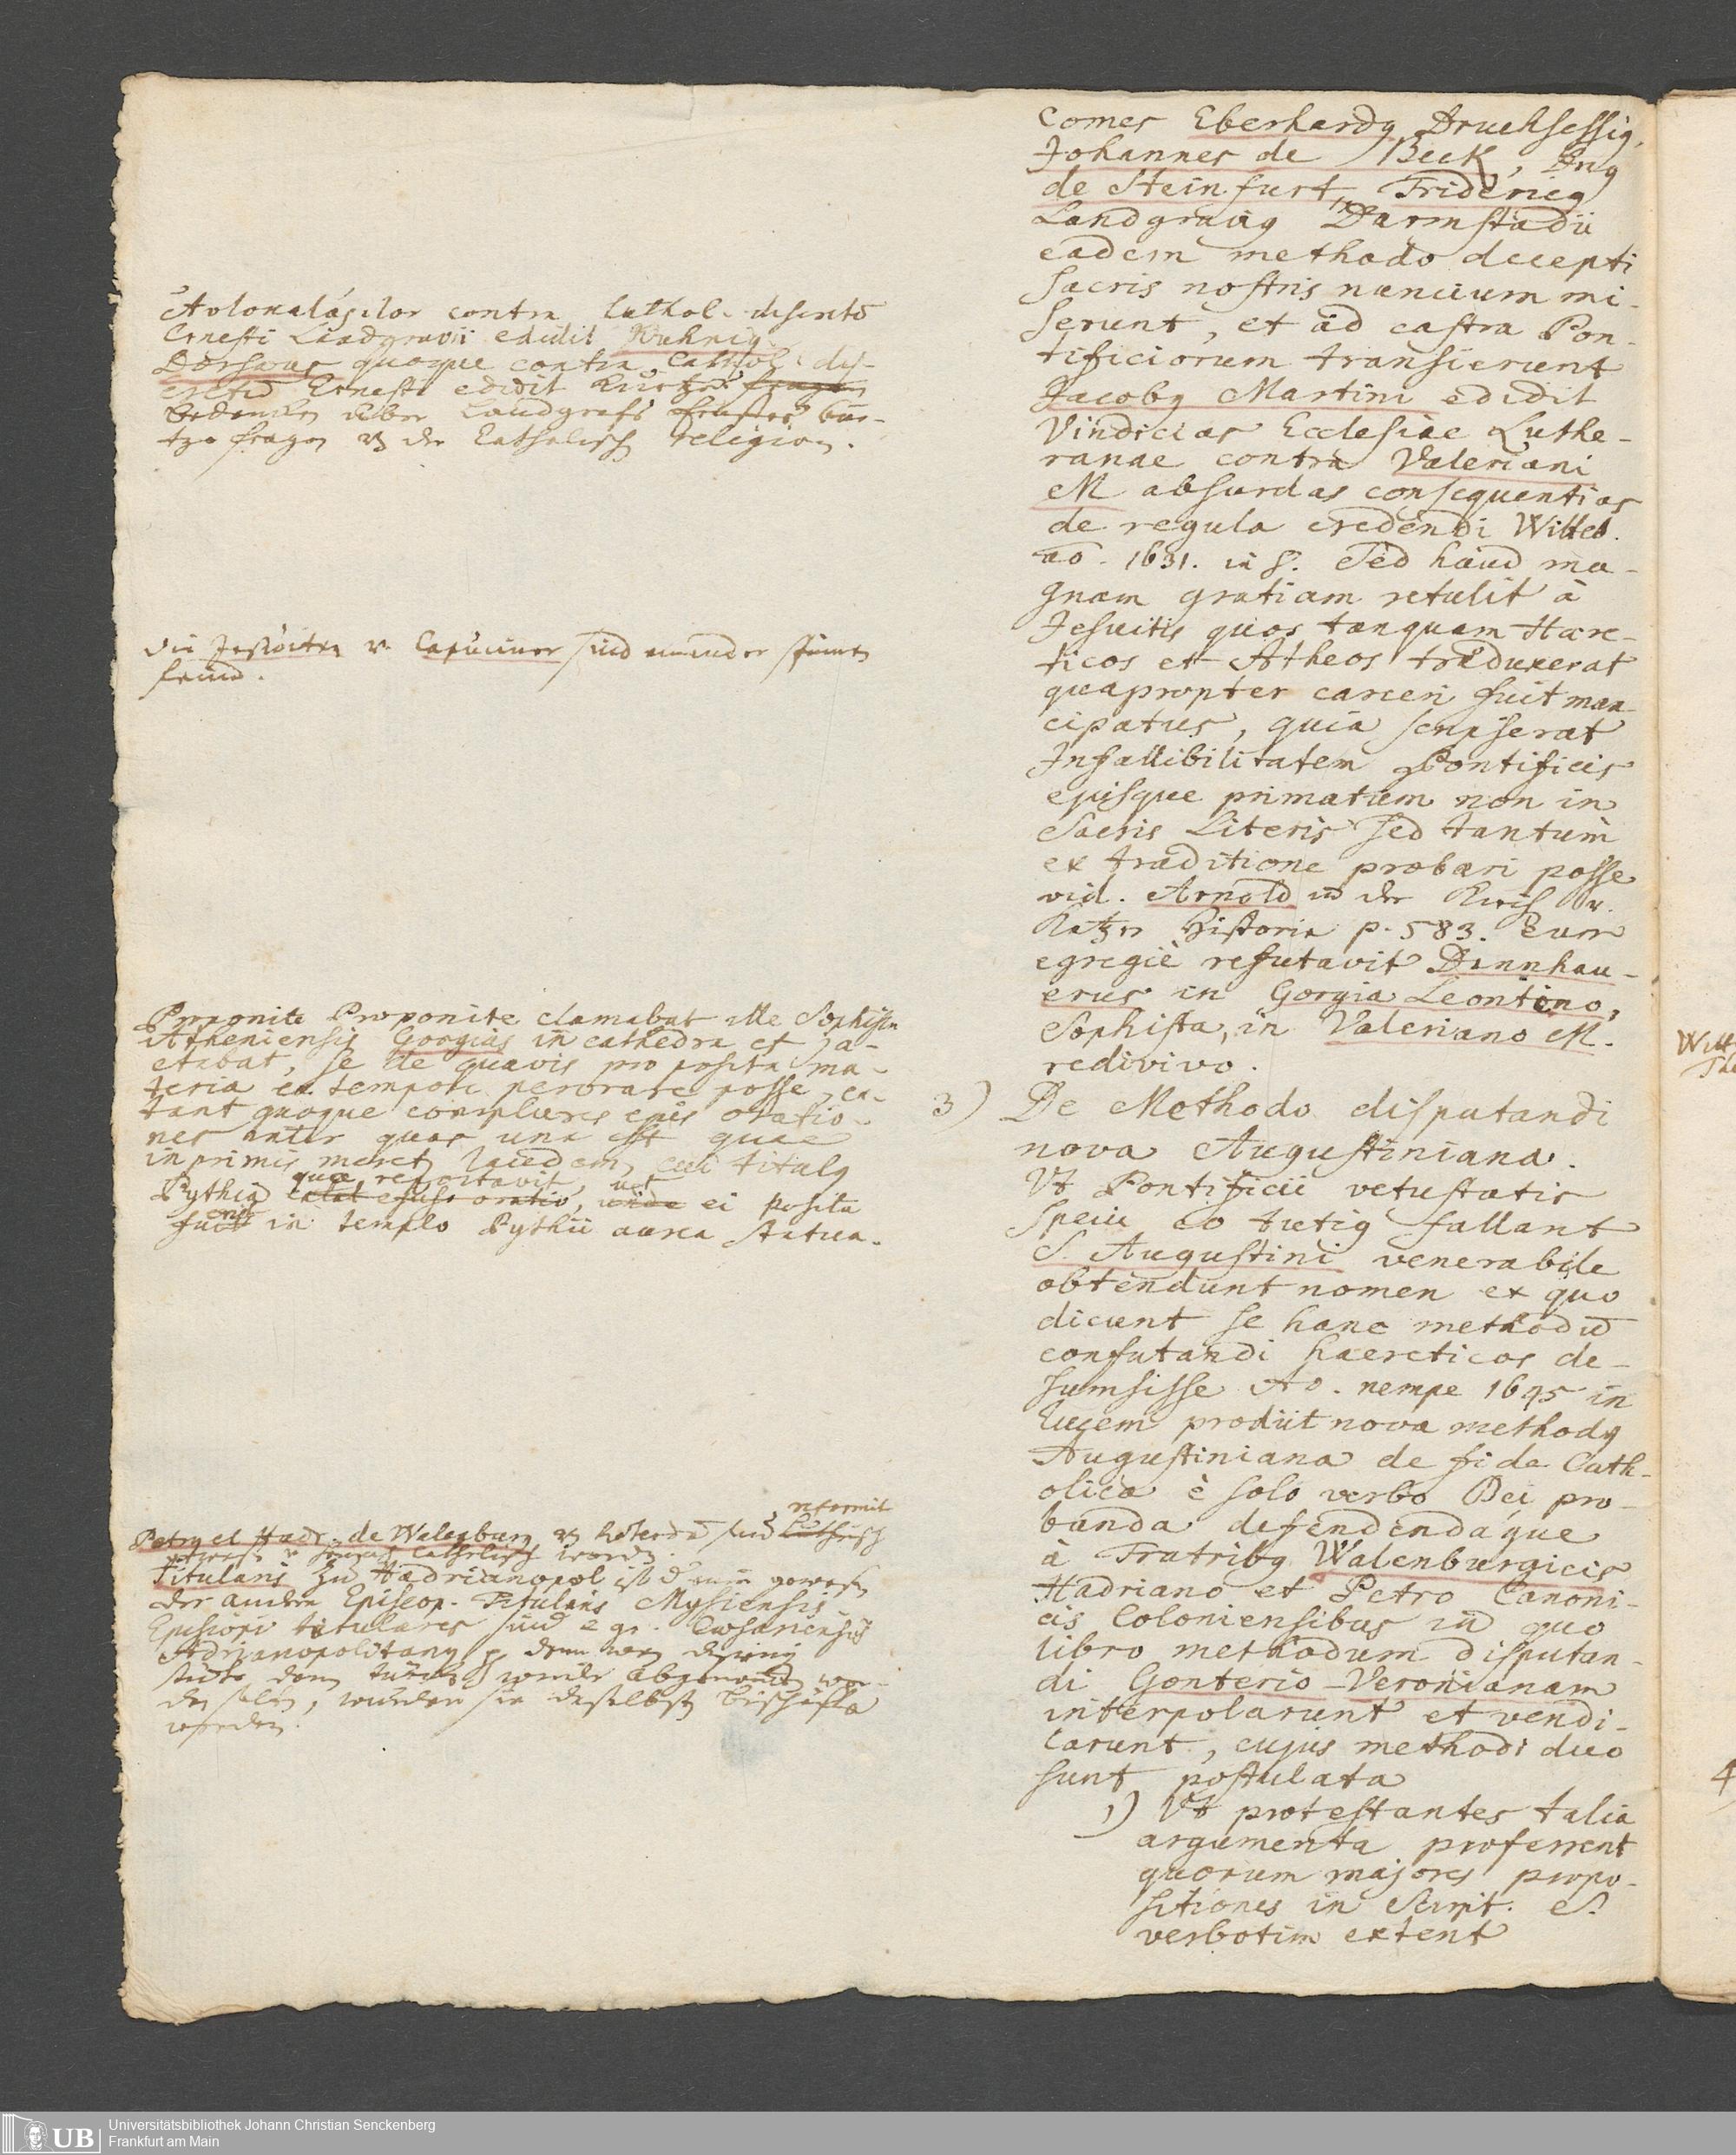 Comes Eberhardg Druchsessig,
Johannes de Beck, Dng
de Steinfurt, Fridericg
Landgravig in Darmstadii
eadem methodo decepti
sacris nostris nuncium mi-
serunt, et ad castra Pon-
tificiorum transierunt
Jacobg Martini edidit
Vindicias Ecclesiae Luthe-
ranae contra Valeriani
M absurdas consequentias
de regula credendi Witteb.
ao. 1631. in 8. Sed haud ma-
gnam gratiam retulit à
Jesuitis quos tanquam Haere-
ticos et Atheos traduxerat
quapropter carceri fuit man-
cipatus, quia scripserat
Infallibilitatem Pontificis
ejusque primatum non in
Sacris Literis sed tantum
ex traditione probari posse
vid. Arnold in der Kirch u.
Ketzer Historie p. 583. Eum
egregiè refutavit Dannhau-
erus in Gorgia Leontino,
Sophista, in Valeriano M.
redivivo.
3) De Methodo disputandi
nova Augustiniana.
Vt Pontificii vetustatis
specie eo tutig fallant
S. Augustini venerabile
obtendunt nomen ex quo
dicunt se hanc methodū
confutandi haereticos de-
sumsisse Ao. nempe 1645 in
lucem prodiit nova methodg
Augustiniana de fide Cath-
olica è solo verbo Dei pro-
banda defendendaque
à Fratribg Walenburgicis
Hadriano et Petro Canoni-
cis Coloniensibus in quo
libro methodum disputan-
di Gonterio-Veronianam
interpolarunt et vendi-
carunt, cujus methodi duo
sunt postulata
1) Vt protestantes talia
argumenta proferrent
quorum majores propo-
sitiones in Script. S.
verbotim extent
contra Cathol. discretū
Ernesti Landgravii edidit
Dorschaeus quoque contra Cathol. dis-
cretū Ernesti edidit Kurtze fragen
Gedancken über Landgrafs Ernstes kur-
tze fragen der Catholisch Religion.
Die Jesuiten u. Capuciner sind einander spinne
feind.
Proponite Proponite clamabat ille Sophista
Atheniensis Gorgias in cathedra et ja-
ctabat, se de quavis proposita ma-
teria ex tempore perorare posse, ex-
tant quoque complures ejus oratio-
nes inter quas una est quae
inprimis meret laudem, cui titulg
Pythig quae reportavit, ut ei posita
in templo Pythii aurea statua.
Petrg et Hadr. de Walenburg reformit
Catholisch worden.
Titularis zu Hadrianopol ist einer gewesen
der andere Episcop. Titularis Mysiensis
Episcopi titulares sind e. gr.
Adrianopolitang
städte dem Türcken wieder abgenommen wer-
den solten, würden sie daselbst Bischöffe
werden.